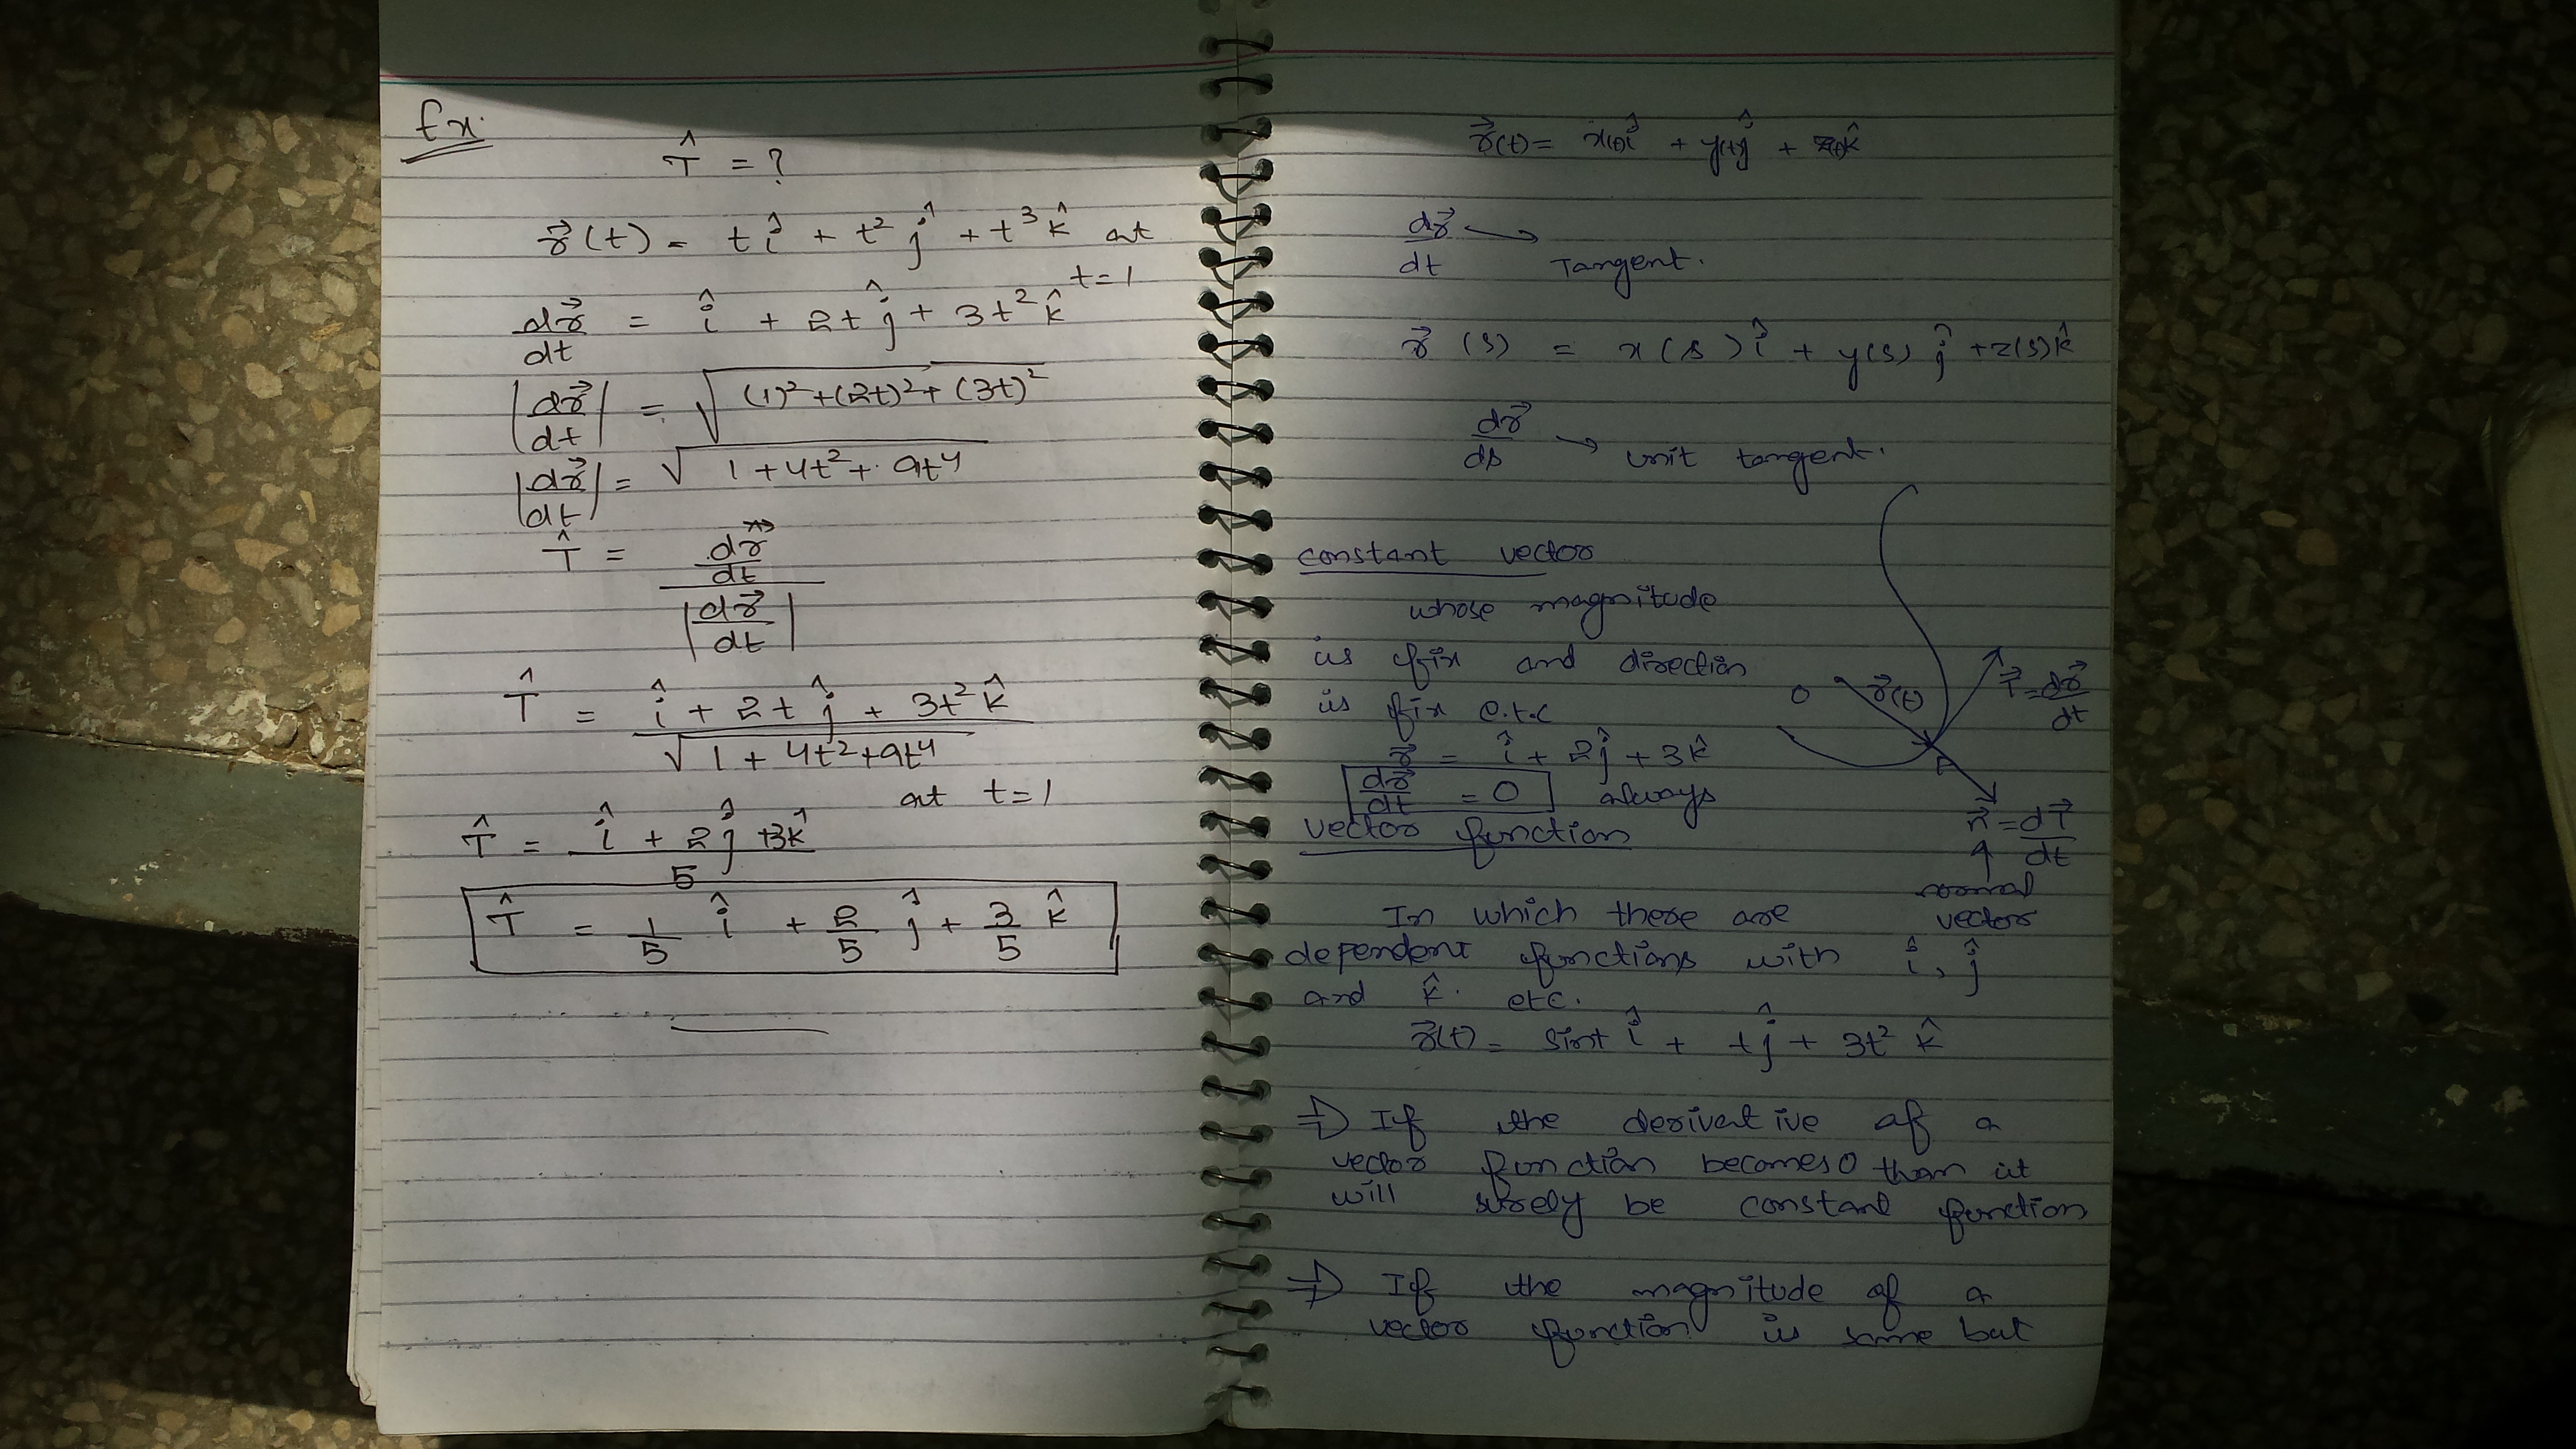 Ex.
T̂ = ?
r⃗(t) = t î + t² ĵ + t³ k̂ at
t=1
dr⃗/dt = î + 2t ĵ + 3t² k̂
|dr⃗/dt| = √((1)² + (2t)² + (3t)²)
|dr⃗/dt| = √(1 + 4t² + 9t⁴)
T̂ = (dr⃗/dt) / |dr⃗/dt|
T̂ = (î + 2t ĵ + 3t² k̂) / √(1 + 4t² + 9t⁴)
at t=1
T̂ = (î + 2ĵ + 3k̂) / 5
T̂ = 1/5 î + 2/5 ĵ + 3/5 k̂
r⃗(t) = x(t)î + y(t)ĵ + z(t)k̂
dr⃗/dt → Tangent.
r⃗(s) = x(s)î + y(s)ĵ + z(s)k̂
dr⃗/ds → unit tangent.
constant vector
whose magnitude
is fix and direction
is fix e.t.c
r⃗ = î + 2ĵ + 3k̂
dr⃗/dt = 0 always
O
r⃗(t)
T⃗ = dr⃗/dt
n⃗ = dT⃗/dt
normal
vector
vector function
In which there are
dependent functions with î, ĵ
and k̂. etc.
r⃗(t) = sint î + tĵ + 3t² k̂
⇒ If the derivative of a
vector function becomes 0 than it
will surely be constant function
⇒ If the magnitude of a
vector function is same but